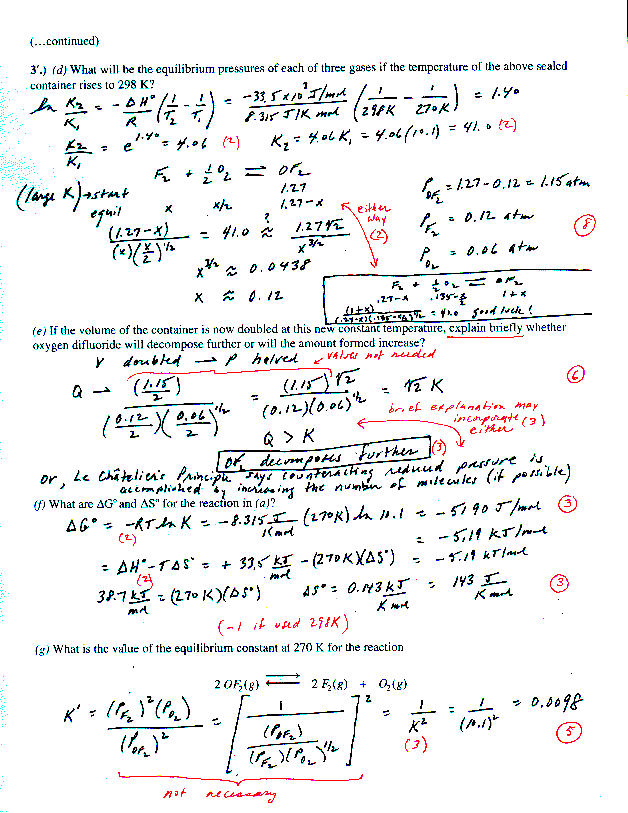 (...continued)
3'.) (d) What will be the equilibrium pressures of each of three gases if the temperature of the above sealed
container rises to 298 K?
ln K₂/K₁ = -ΔH°/R (1/T₂ - 1/T₁) = -33.5 x10³ J/mol / 8.315 J/K mol (1/298K - 1/270K) = 1.40
K₂/K₁ = e^1.40 = 4.06 (2) K₂ = 4.06 K₁ = 4.06(10.1) = 41.0 (2)
F₂ + ½ O₂ ⇌ OF₂
(large K) → start 1.27
equil x x/2 1.27-x
P_OF₂ = 1.27-0.12 = 1.15 atm
(1.27-x) / (x)(x/2)^1/2 = 41.0 ≈? 1.27√2 / x^3/2
either way (2)
P_F₂ = 0.12 atm
(8)
x^3/2 ≈ 0.0438
P_O₂ = 0.06 atm
x ≈ 0.12
F₂ + ½ O₂ ⇌ OF₂
.27-x .135-x/2 1+x
(1+x) / (.27-x)(.135-x/2)^1/2 = 41.0 good luck!
(e) If the volume of the container is now doubled at this new constant temperature, explain briefly whether
oxygen difluoride will decompose further or will the amount formed increase?
V doubled → P halved values not needed
Q → (1.15)/2 / (0.12/2)(0.06/2)^1/2 = (1.15)√2 / (0.12)(0.06)^1/2 = √2 K
(6)
brief explanation may incorporate either (3)
Q > K
OF₂ decomposes further (3)
or, Le Châtelier's Principle says counteracting reduced pressure is
accomplished by increasing the number of molecules (if possible)
(f) What are ΔG° and ΔS° for the reaction in (a)?
ΔG° = -RT ln K = -8.315 J/K mol (270K) ln 10.1 = -5190 J/mol (3)
(2) = -5.19 kJ/mol
= ΔH°-TΔS° = + 33.5 kJ/mol - (270K)(ΔS°) = -5.19 kJ/mol
(2)
38.7 kJ/mol = (270 K)(ΔS°) ΔS° = 0.143 kJ/K mol = 143 J/K mol (3)
(-1 if used 298K)
(g) What is the value of the equilibrium constant at 270 K for the reaction
2 OF₂(g) ⇌ 2 F₂(g) + O₂(g)
K' = (P_F₂)²(P_O₂) / (P_OF₂)² = [1 / (P_OF₂) / (P_F₂)(P_O₂)^1/2]² = 1/K² = 1/(10.1)² = 0.0098
(3) (5)
not necessary